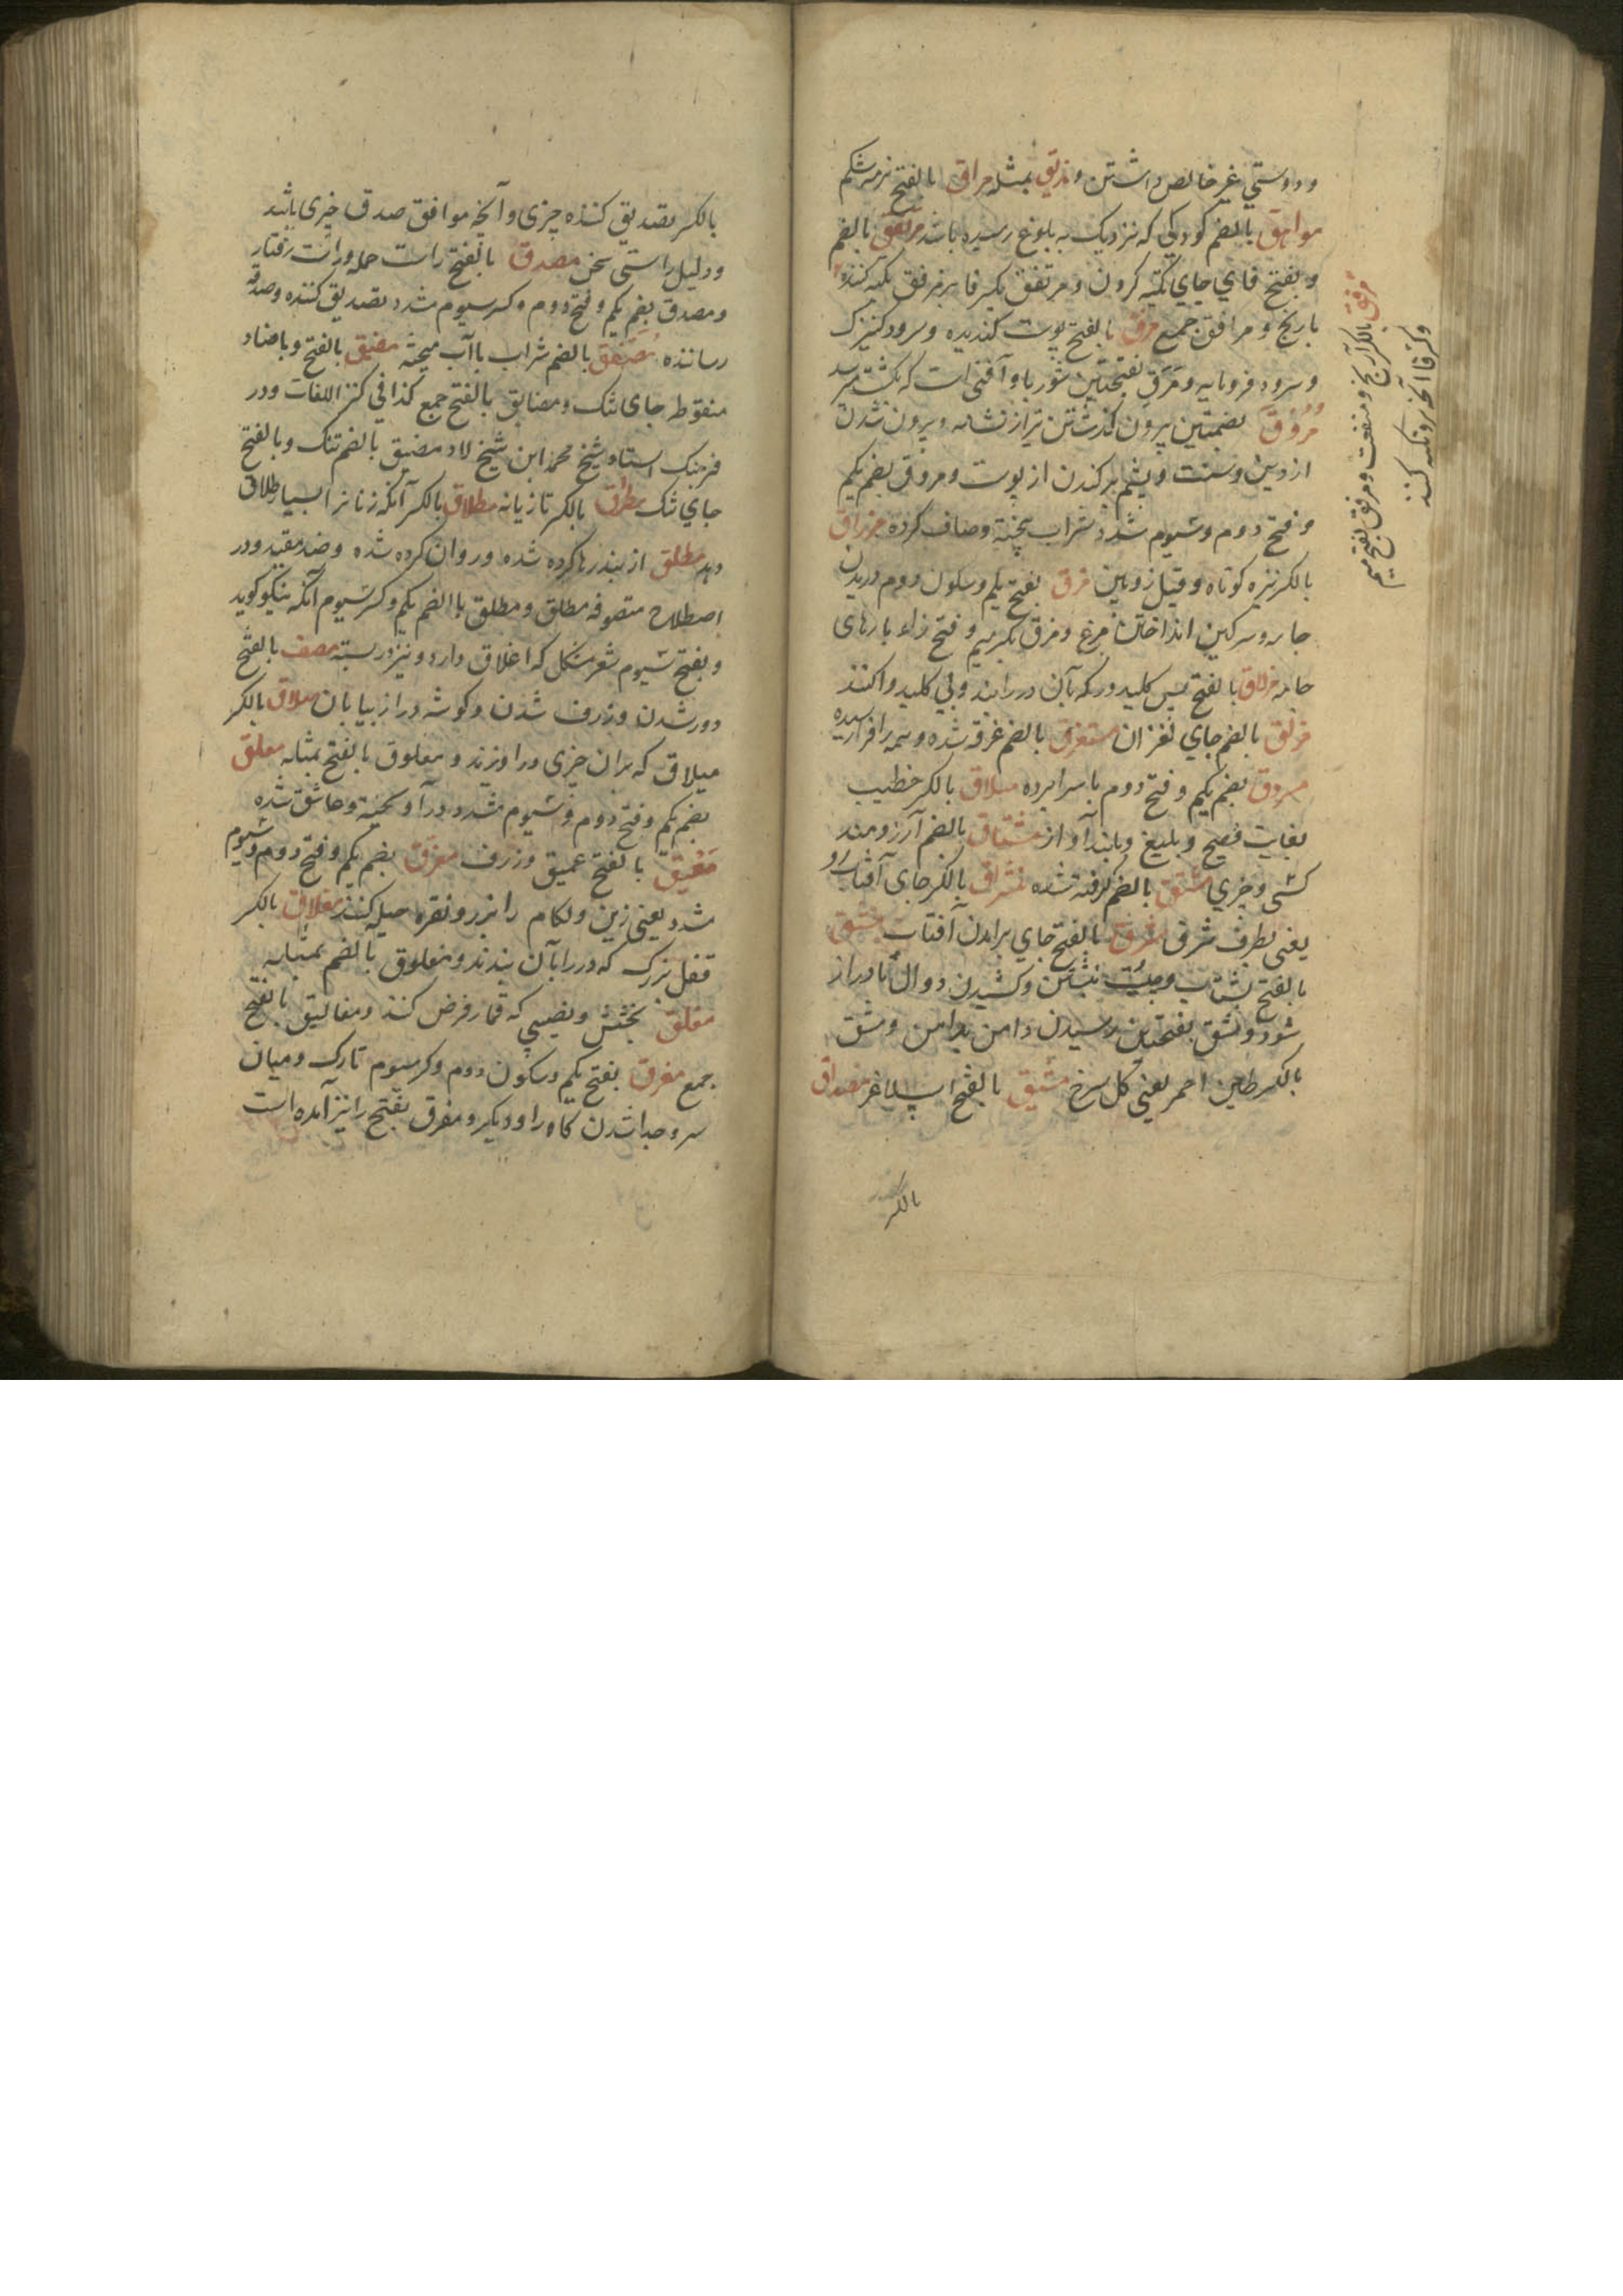 و دوستی غیر خالص داشتن و مذیق بمثله مراق بالفتح نرمه شکم
مراهق بالضم کودکی که نزدیک به بلوغ رسیده باشد مرتفق بالضم
و بفتح فای جای تکیه کردن و مرتفق بکسر فا بر مرفق تکیه کننده
بارنج و مرافق جمع مرق بالفتح پوست کندیده و سرود کنیزک
و سرود فرومایه و مرق بفتحتین شوربا و آفتی است که بکشت رسد
مروق بضمتین بیرون گذشتن تیر از نشانه و بیرون شدن
از دین و سنت و پشم برکندن از پوست و مروق بضم یکم
و فتح دوم و سیوم مشدد شراب پخته و صاف کرده مزراق
بالکسر نیزه کوتاه و قیل زوبین مزق بفتح یکم و سکون دوم دریدن
جامه و سرکین انداختن مرغ و مزق بکسر میم و فتح زاء پارهای
جامه مزلاق بالفتح پس کلید در که بآن در را بندد و بی کلید واکنند
مزلق بالضم جای لغزان مستغرق بالضم غرقه شده و همه را فرا رسیده
مسردق بضم یکم و فتح دوم با سراپرده مسلاق بالکسر خطیب
بغایت فصیح و بلیغ و بلند آواز مشتاق بالضم آرزومند
کسی و چیزی مشتق بالضم گرفته شده مشراق بالکسر جای آفتاب رو
یعنی بطرف شرق مشرق بالفتح جای برآمدن آفتاب مشق
بالفتح بشتاب و چیت نبشتن و کشیدن دوال تا دراز
شود و مشق بفتحتین رسیدن دامن بدامن و مشق
بالکسر طین احمر یعنی کل سرخ مشیق بالفتح اسپ لاغر مصداق
بالکسر
مرفق بالکسر آرنج و منفعت و مرفق بفتح میم
و کسر فا آنچه برو تکیه کنند
بالکسر تصدیق کننده چیزی و آنچه موافق صدق چیزی باشد
و دلیل راستی سخن مصدق بالفتح راست حمله و راست رفتار
و مصدق بضم یکم و فتح دوم و کسر سیوم مشدد تصدیق کننده و صدقه
رساننده مصفق بالضم شراب با آب میخته مضیق بالفتح و با ضاد
منقوطه جای تنک و مضایق بالفتح جمع کذا فی کنز اللغات و در
فرهنک استاد شیخ محمد ابن شیخ لاد مضیق بالضم تنک و بالفتح
جای تنک مطرق بالکسر تازیانه مطلاق بالکسر آنکه زنانرا بسیار طلاق
دهد مطلق از بند رها کرده شده و روان کرده شده و ضد مقید و در
اصطلاح متصوفه مطلق و مطلق باالضم یکم و کسر سیوم آنکه نیکو گوید
و بفتح سیوم شعر مشکل که اغلاق دارد و نیز در بسته معق بالفتح
دور شدن و زرف شدن و کوشه دراز بیابان معلاق بالکسر
میلاق که بران چیزی درآویزند و معلوق بالفتح بمثابه معلق
بضم یکم و فتح دوم و سیوم مشدد درآویخته و عاشق شده
معیق بالفتح عمیق و زرف مغرق بضم یکم و فتح دوم و سیوم
مشدد یعنی زین و لکام را بزر و نقره حیله کنند مغلاق بالکسر
قفل بزرک که در را بآن بندند و مغلوق بالضم بمثابه
مغلق بخشش و نصیبی که قمار فرض کنند و مغالیق بالفتح
جمع مفرق بفتح یکم و سکون دوم و کسر سیوم تارک و میان
سر و جدا شدن کاه راه و دیگر و مفرق بفتح را نیز آمده است